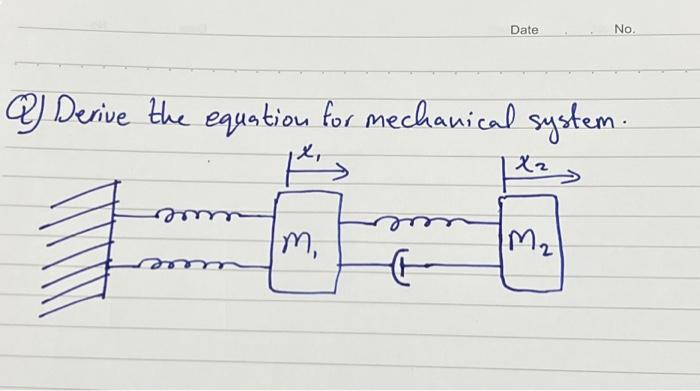 Date No.
Q) Derive the equation for mechanical system.
x₁ x₂
m₁ M₂